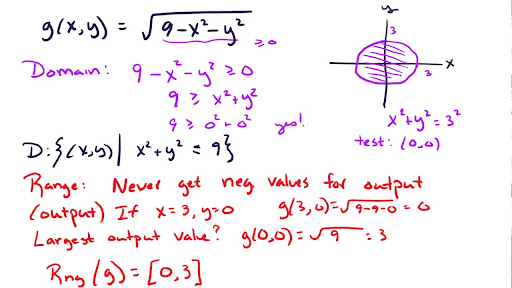 g(x,y) = √(9-x²-y²)
≥0
y
3
x
3
Domain: 9-x²-y² ≥ 0
9 ≥ x²+y²
9 ≥ 0²+0² yes!
x²+y²=3²
test: (0,0)
D: {(x,y) | x²+y² = 9}
Range: Never get neg values for output
(output) If x=3, y=0 g(3,0)=√(9-9-0) = 0
Largest output value? g(0,0)=√9 = 3
Rng (g) = [0,3]